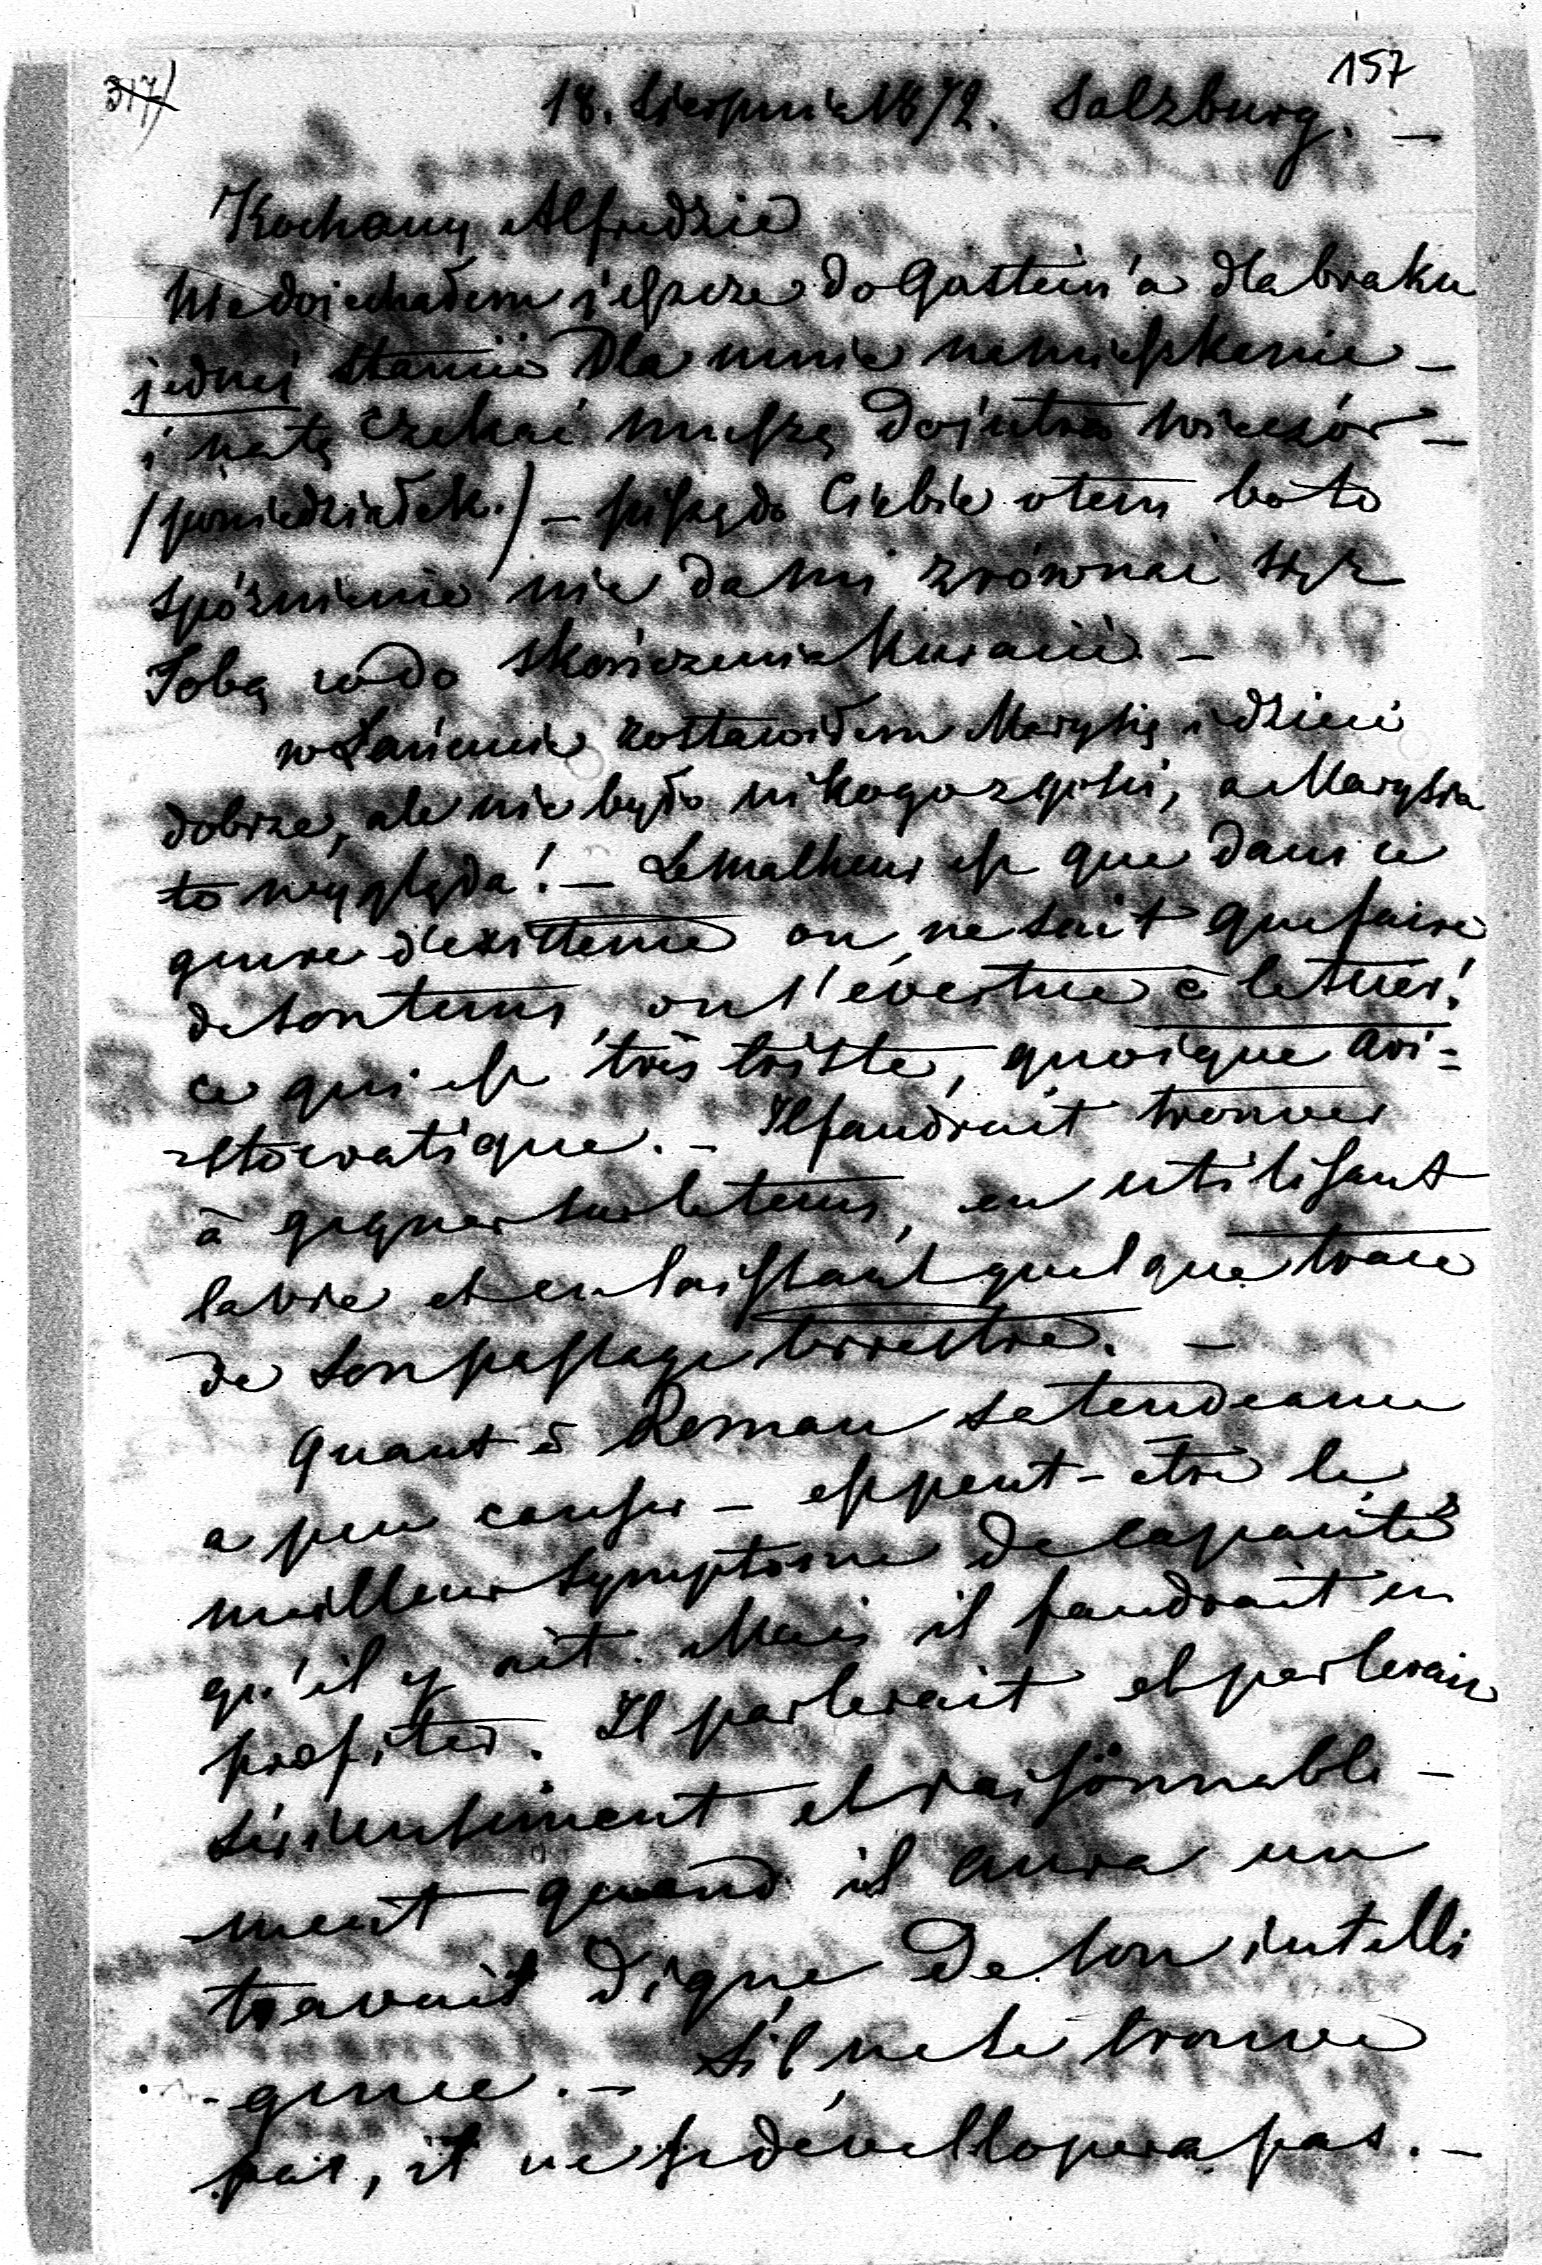 317)
157
18. Sierpnia 1872. Salzburg. —
Kochany Alfredzie
Nie dojechałem jeszcze do Gastein'a dla braku
jednej stancii dla mnie na mieszkanie —
i na tę czekać muszę do jutra wieczór —
(poniedziałek.) — piszę do Ciebie o tem bo to
spóźnienie nie da mi zrównać się z
Tobą co do skończenia kuracii —
w Łańcucie zostawiłem Marysię i dzieci
dobrze, ale nie było nikogo z gości, a Marysia
to wygląda! — Le malheur est que dans ce
genre d'existence on ne sait que faire
de son tems, on s'évertue à le tuer!
ce qui est très triste, quoique ari=
stocratique. — Il faudrait trouver
à gagner sur le tems, en utilisant
la vie et en laissant quelque trace
de son passage terrestre. —
Quant à Roman sa tendeance
a peu causer — est peut-être le
meilleur symptome de capacités
qu'il y ait. Mais il faudrait en
profiter. Il parlerait et parlerait
sérieusement et raisonnable-
ment quand il aura un
travail digne de son intelli
-gence. — S'il ne le trouve
pas, il ne se dévelloppera pas. —